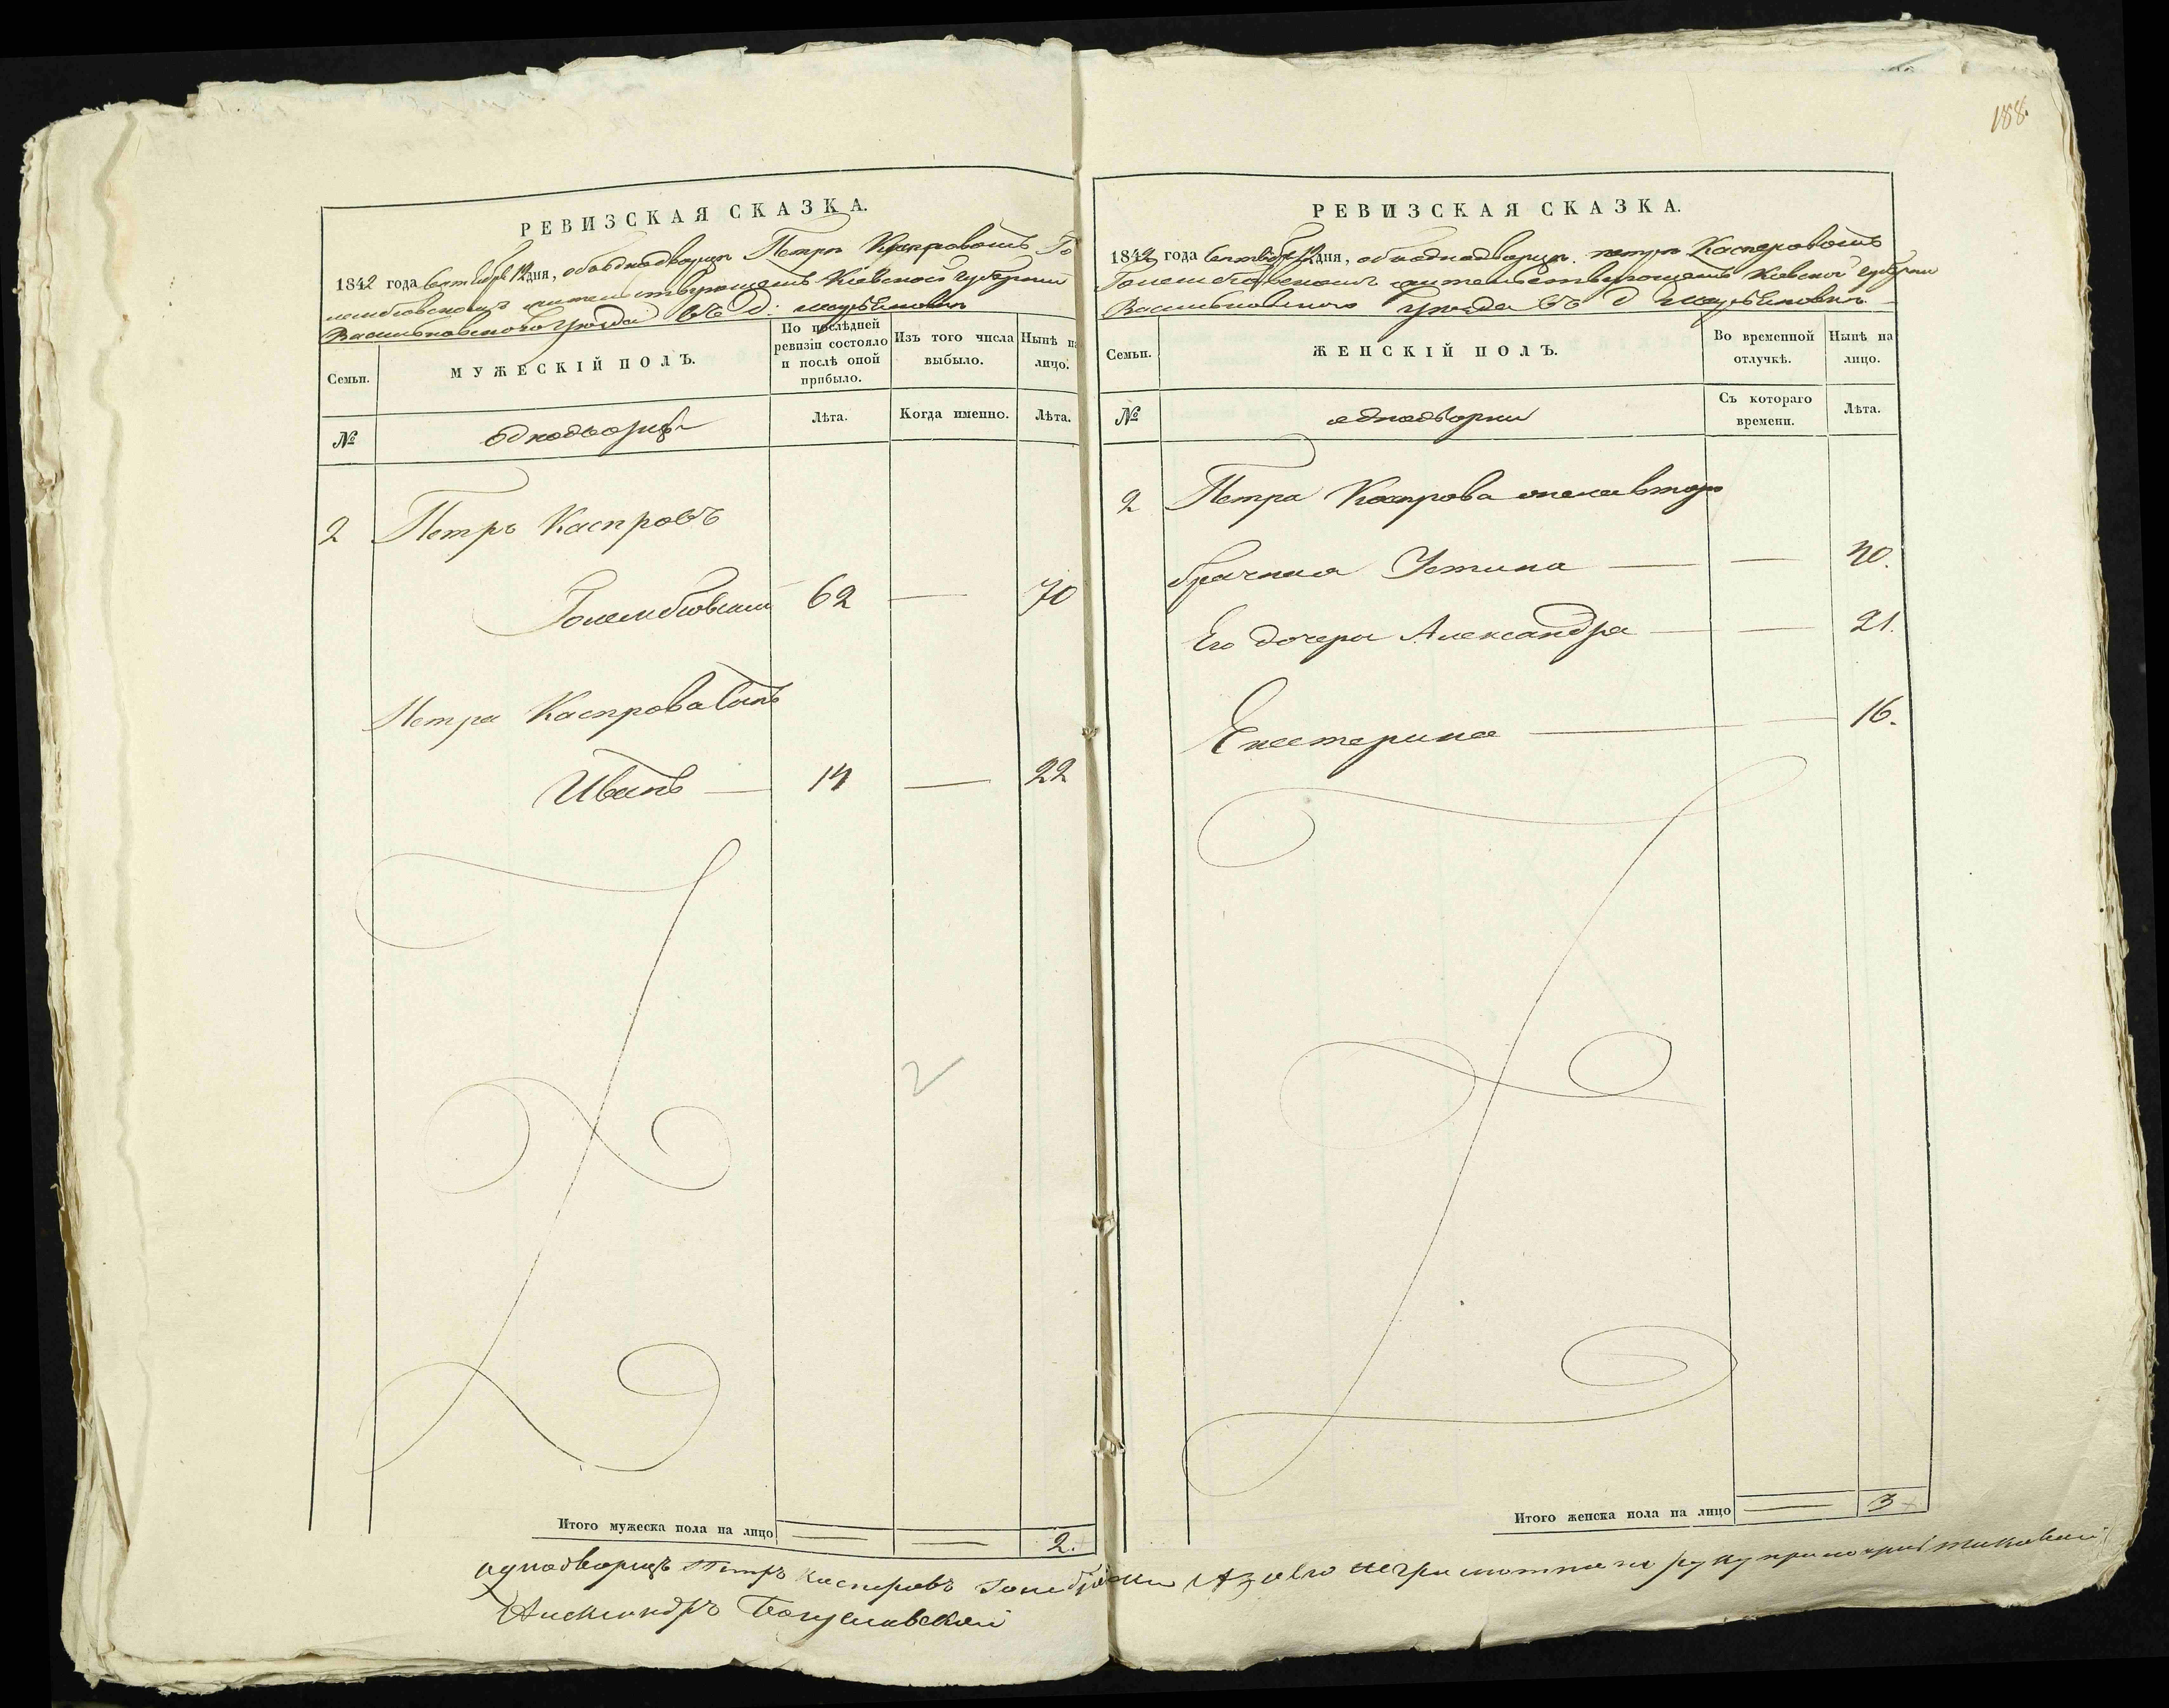 188.
РЕВИЗСКАЯ СКАЗКА.
1842 года Сентября 12 дня, объ однодворцѣ Петрѣ Каспровомъ Го
лембіовскомъ жительствующемъ Кіевской Губерніи
Васильковскаго уѣзда въ д.
Семьи.
МУЖЕСКІЙ ПОЛЪ.
По послѣдней ревизіи состояло и послѣ оной прибыло.
Изъ того числа выбыло.
Нынѣ на лицо.
№
однодворцы
Лѣта.
Когда именно.
Лѣта.
2 Петръ Каспровъ
Голембіовскій 62 — 70
Петра Каспрова Сынъ
Иванъ — 14 — 22
2
Итого мужеска пола на лицо — — 2.
РЕВИЗСКАЯ СКАЗКА.
1842 года Сентября 12 дня, об однодворцѣ петрѣ Касперовомъ
Голембіовскомъ жительствующемъ Кіевской Губерніи
Васильковского уѣзда въ д
Семьи.
ЖЕНСКІЙ ПОЛЪ.
Во временной отлучкѣ.
Нынѣ на лицо.
№
однодворки
Съ котораго времени.
Лѣта.
2 Петра Каспрова жена втора
брачная Устина — — 40.
Его дочери Александра — — 21.
Екатерина — — 16.
Итого женска пола на лицо — 3
однодворецъ Петръ Касперовъ руку приложилъ
Александръ Богуславскій